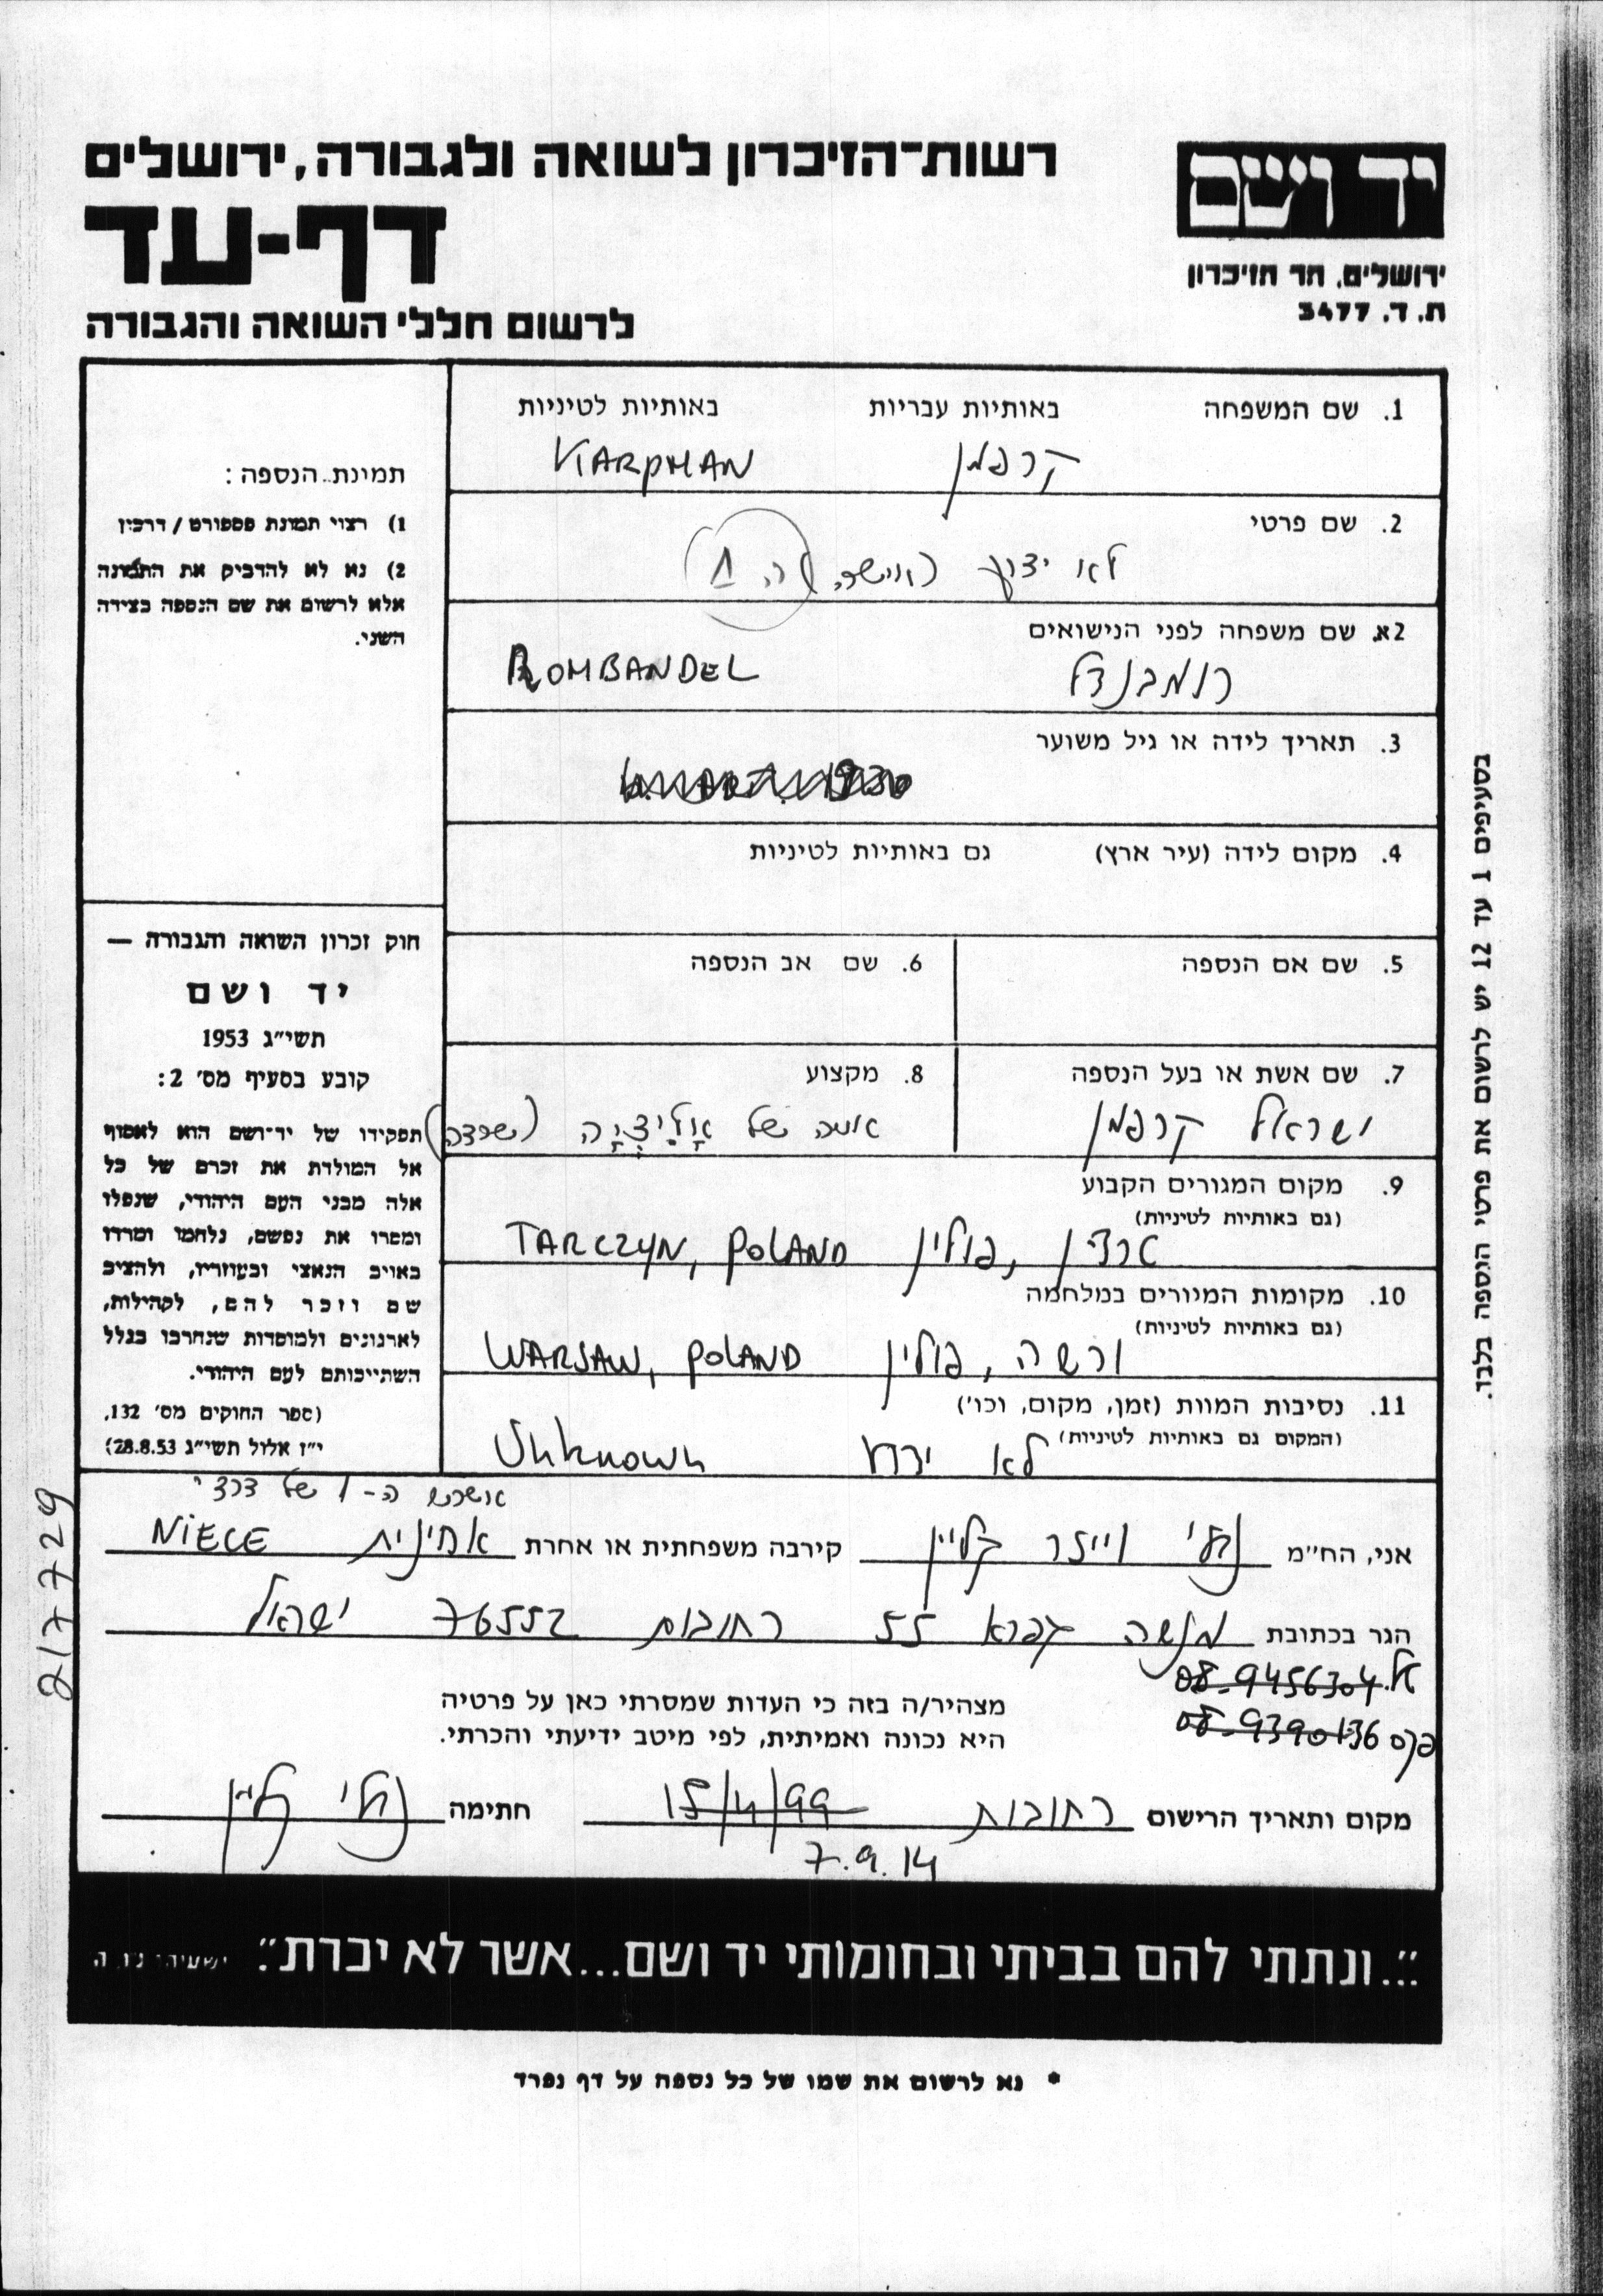 רשות-הזיכרון לשואה ולגבורה, ירושלים
יד ושם
דף-עד
ירושלים, הר הזיכרון
ת. ד. 3477
לרשום חללי השואה והגבורה
1. שם המשפחה באותיות עבריות באותיות לטיניות
קרפמן KARPMAN
2. שם פרטי
לא ידוע (אישה) ה 1
2א. שם משפחה לפני הנישואים
רומבנדל ROMBANDEL
3. תאריך לידה או גיל משוער
4. מקום לידה (עיר ארץ) גם באותיות לטיניות
5. שם אם הנספה
6. שם אב הנספה
7. שם אשת או בעל הנספה
ישראל קרפמן
8. מקצוע
אמה של (שרדה)
9. מקום המגורים הקבוע
(גם באותיות לטיניות)
טרצ'ין, פולין TARCZYN, POLAND
10. מקומות המגורים במלחמה
(גם באותיות לטיניות)
ורשה, פולין WARSAW, POLAND
11. נסיבות המוות (זמן, מקום, וכו')
(המקום גם באותיות לטיניות)
לא ידוע Unknown
תמונת הנספה:
1) רצוי תמונת פספורט / דרכון
2) נא לא להדביק את התמונה
אלא לרשום את שם הנספה בצידה
השני.
חוק זכרון השואה והגבורה —
יד ושם
תשי"ג 1953
קובע בסעיף מס' 2:
תפקידו של יד-ושם הוא לאסוף
אל המולדת את זכרם של כל
אלה מבני העם היהודי, שנפלו
ומסרו את נפשם, נלחמו ומרדו
באויב הנאצי ובעוזריו, ולהציב
שם וזכר להם, לקהילות,
לארגונים ולמוסדות שנחרבו בגלל
השתייכותם לעם היהודי.
(ספר החוקים מס' 132,
י"ז אלול תשי"ג 28.8.53)
בסעיפים 1 עד 12 יש לרשום את פרטי הניספה בלבד.
ה-1 של
אני, הח"מ נלי וייזר קליין קירבה משפחתית או אחרת אחינית NIECE
הגר בכתובת מנשה קפרא 55 רחובות 76552 ישראל
08-9456304
פקס 08-9390136
מצהיר/ה בזה כי העדות שמסרתי כאן על פרטיה
היא נכונה ואמיתית, לפי מיטב ידיעתי והכרתי.
מקום ותאריך הרישום רחובות 15/4/99 חתימה נלי קליין
7.9.14
217729
"...ונתתי להם בביתי ובחומותי יד ושם...אשר לא יכרת". ישעיהו נו, ה
* נא לרשום את שמו של כל נספה על דף נפרד